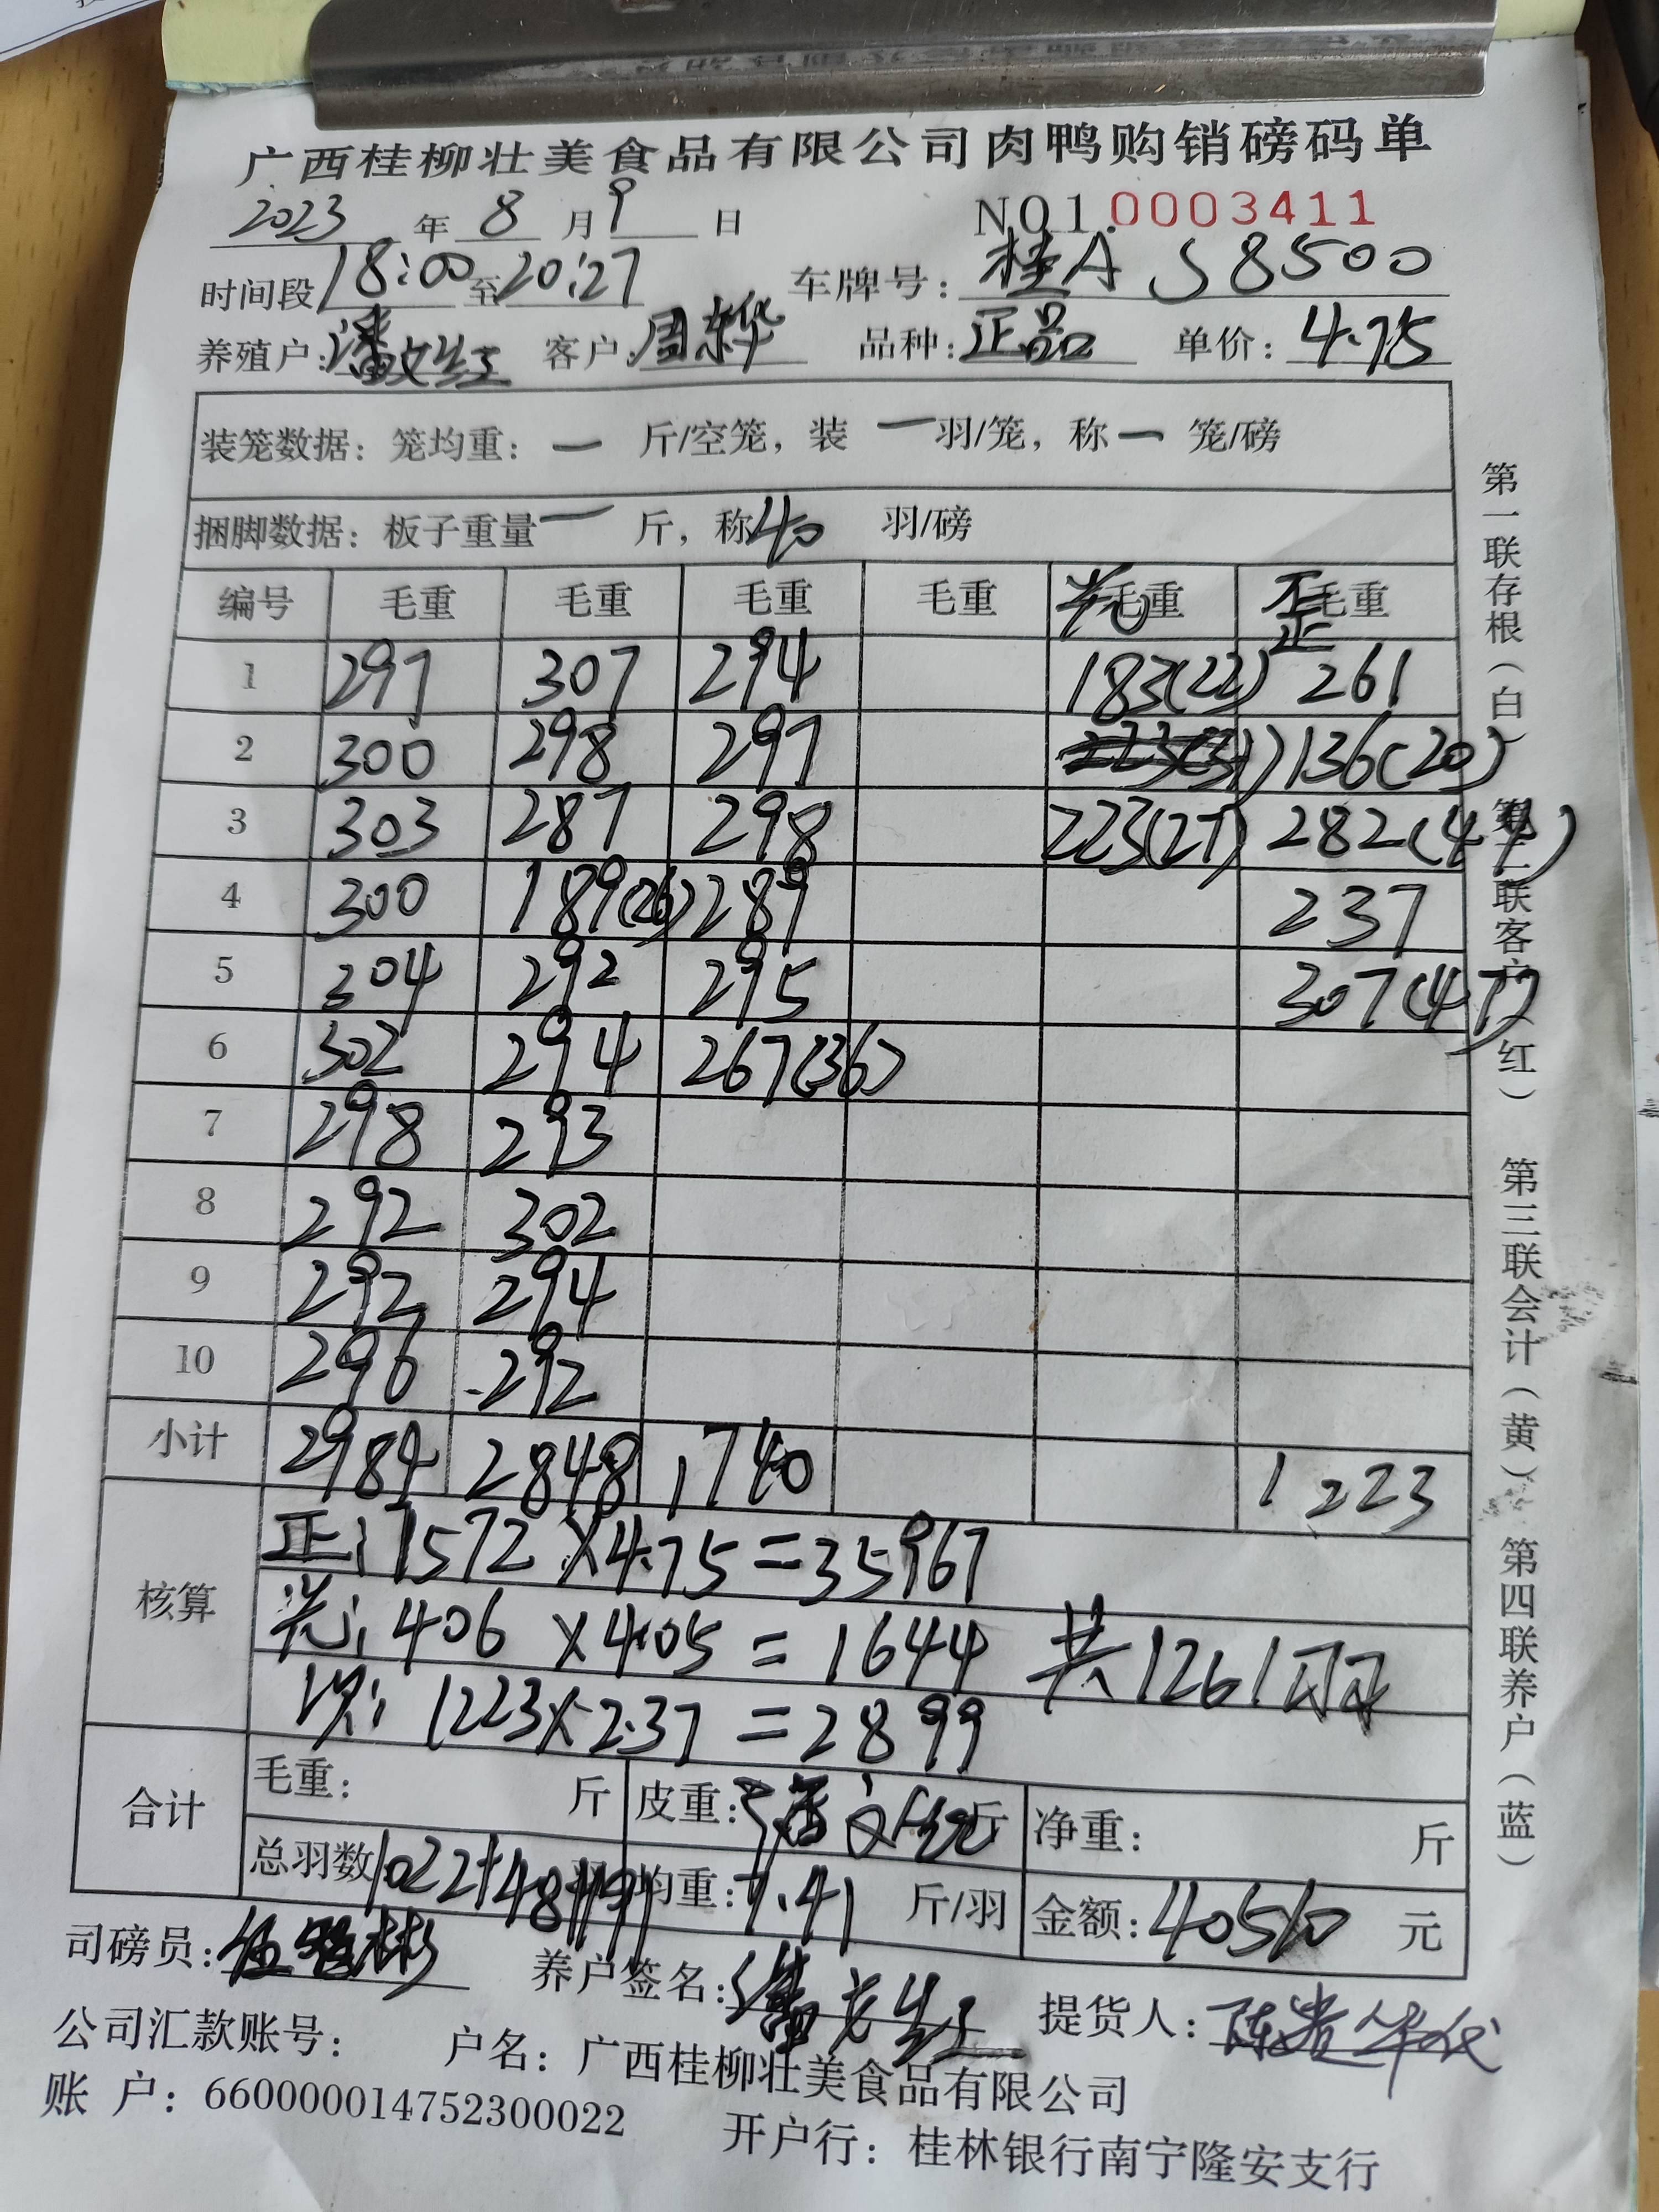 广西桂柳壮美食品有限公司肉鸭购销磅码单
2023 年 8 月 9 日 NO1.0003411
时间段 18:00 至 20:27 车牌号: 桂A S8500
养殖户: 潘文红 客户: 周东华 品种: 正品 单价: 4.75
装笼数据: 笼均重: 一 斤/空笼, 装 一 羽/笼, 称 一 笼/磅
捆脚数据: 板子重量 一 斤, 称 40 羽/磅
编号 毛重 毛重 毛重 毛重 光毛重 歪毛重
1 297 307 294 183(22) 261
2 300 298 297 223(31) 136(20)
3 303 287 298 223(27) 282(44)
4 300 189(26) 289 237
5 304 292 295 307(47)
6 302 294 267(36)
7 298 293
8 292 302
9 292 294
10 296 292
小计 2984 2848 1740 1223
核算
正: 7572 ×4.75 =35967
光: 406 ×4.05 = 1644 共1261羽
次: 1223×2.37 =2899
合计 毛重: 斤 皮重: 潘文红 斤 净重: 斤
总羽数 1022+48+191 均重: 7.41 斤/羽 金额: 40510 元
司磅员: 养户签名: 潘文红 提货人:
公司汇款账号: 户名: 广西桂柳壮美食品有限公司
账 户: 660000014752300022 开户行: 桂林银行南宁隆安支行
第一联存根(白) 第二联客户(红) 第三联会计(黄) 第四联养户(蓝)